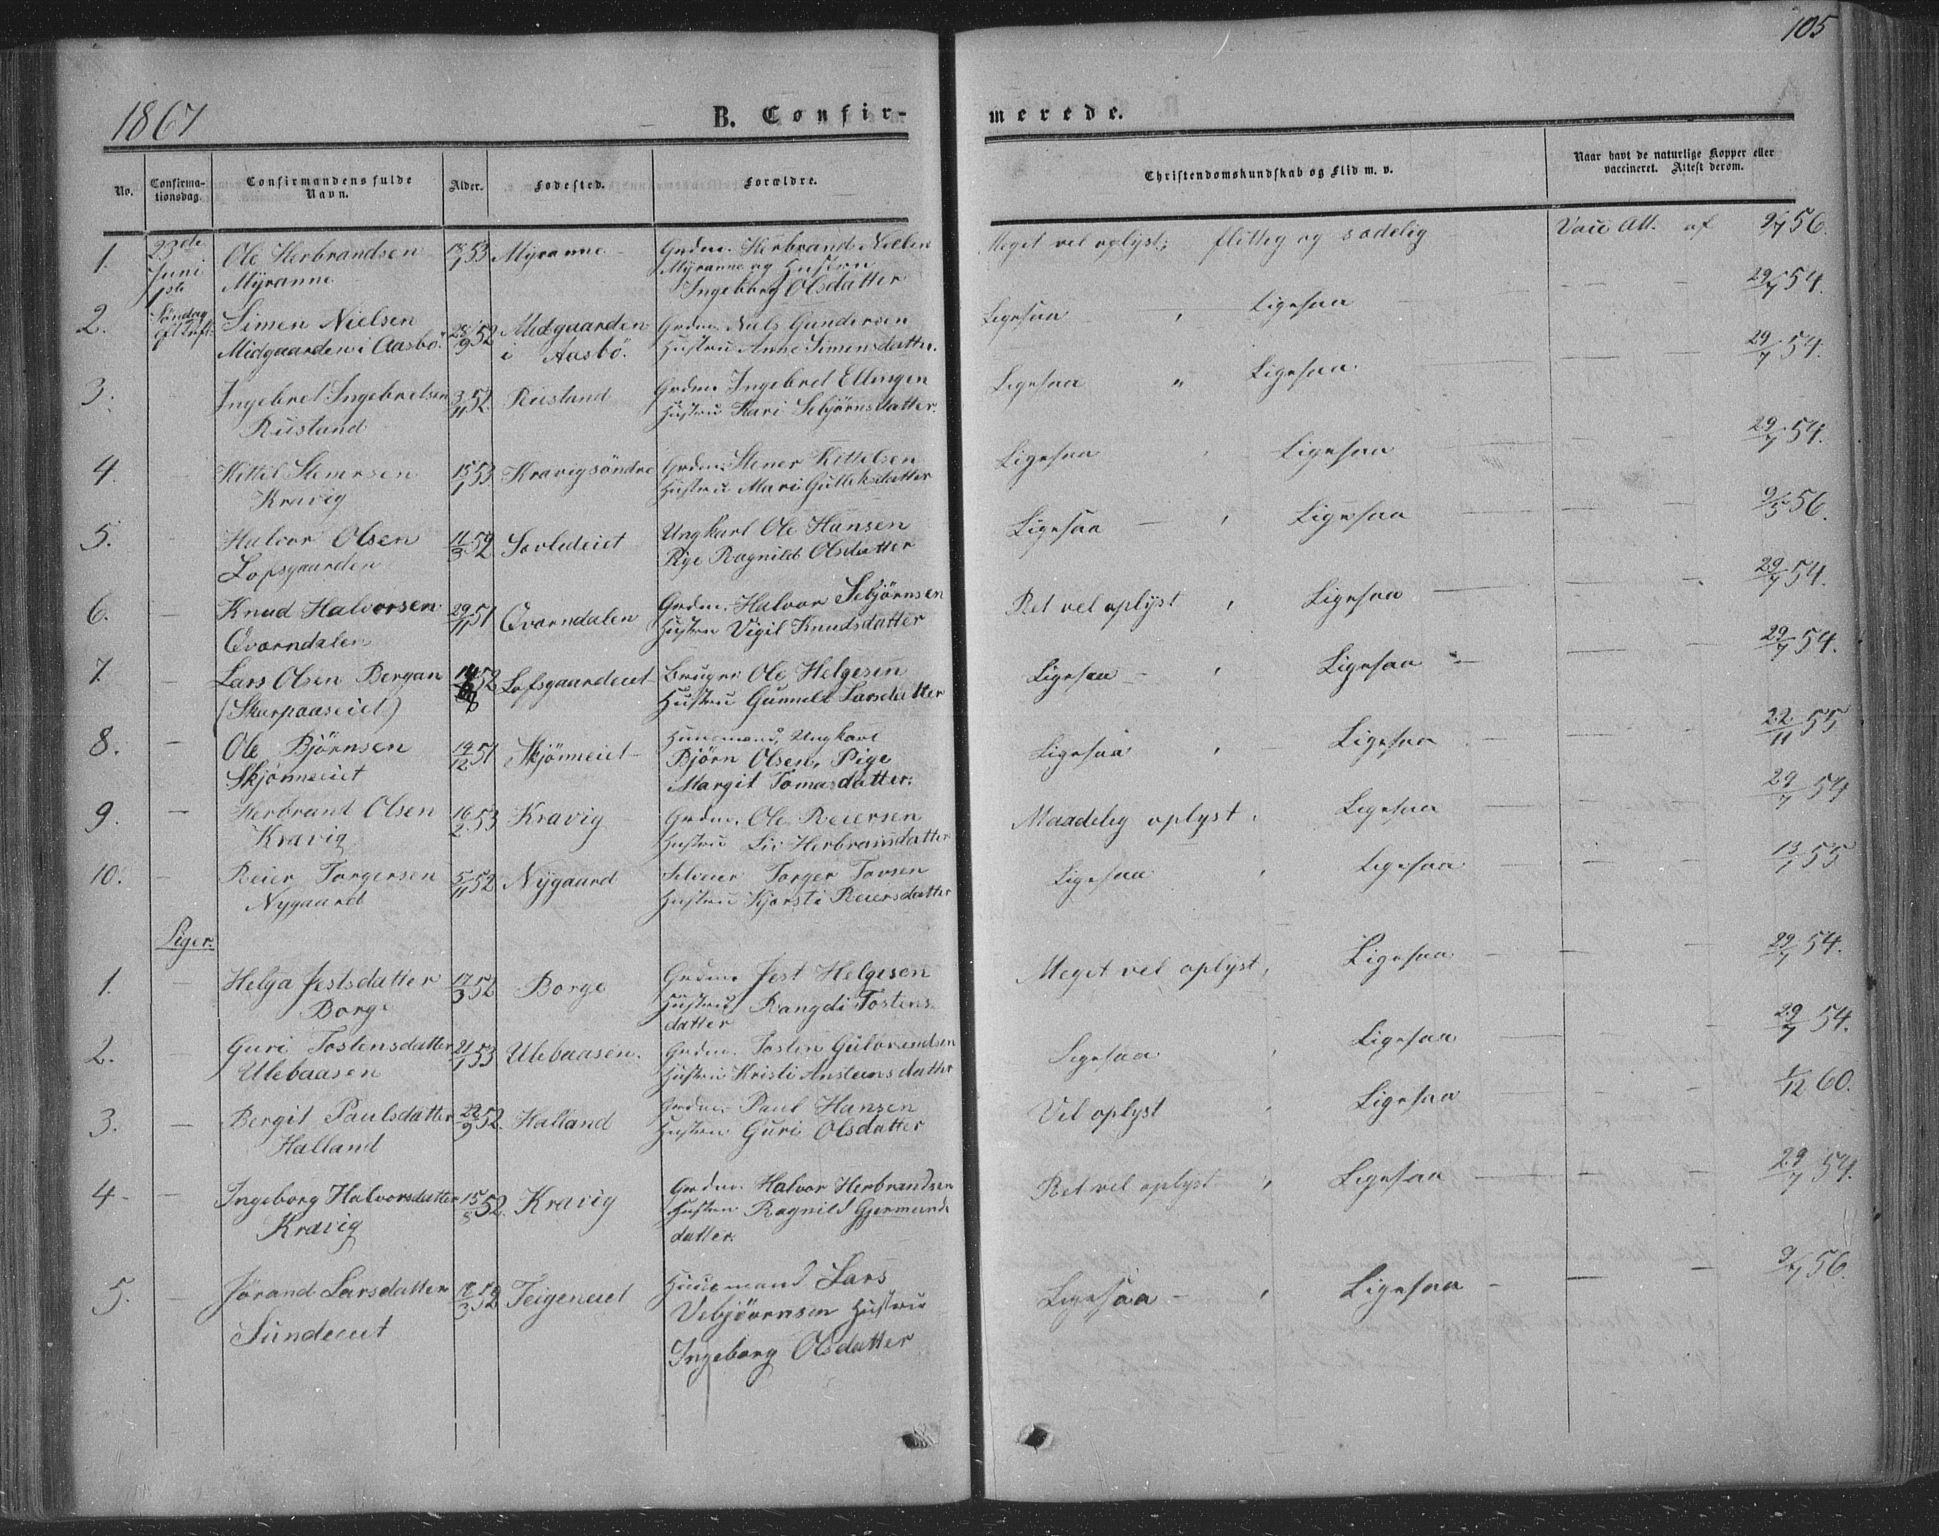 105
1867
B. Confir-
merede.
No.
Confirma-
tionsdag.
Confirmandens fulde
Navn.
Alder.
Fødested.
Forældre.
Christendomskundskab og Flid m. v.
Naar havt de naturlige Kopper eller
vaccineret. Attest derom.
1. 23de Ole Herbrandsen 53 Myranne Grdm. Herbrand Nielsen Meget vel oplyst; flittig og sædelig Vacc Att. af 9/7 56.
Juni Myranne Myranne og Hustru
1ste Ingeborg Olsdatter
2. Søndag Simen Nielsen 52 Midgaarden Grdm. Niels Gundersen Ligesaa Ligesaa 29/7 54.
Midgaarden i Aasbö. i Aasbö. Hustru Anne Simensdatter.
3. Ingebret Ingebretsen 3/11 52. Rustand Grdm. Ingebret Ellingen Ligesaa " Ligesaa 29/7 54.
Rustand Hustru Kari Sebjørnsdatter.
4. Kittel Stenersen 15/1 53 Kravigsöndre Grdm. Stener Kittelsen Ligesaa Ligesaa 29/7 54.
Kravig Hustru Mari Gulliksdatter
5. Halvor Olsen 11/3 52 Ungkarl Ole Hansen Ligesaa — Ligesaa 9/5 56.
Lofsgaarden Pige Ragnild Olsdatter
6. — Knud Halvorsen 29/11 51 Qværndalen Grdm. Halvor Sebjørnsen Ret vel oplyst Ligesaa — 29/7 54.
Qværndalen Hustru Vigil Knudsdatter
7. — Lars Olsen Bergan 52 Lofsgaardeiet Bruger Ole Helgesen Ligesaa — Ligesaa — 29/7 54.
(Skarpaaseiet) Hustru Gunnild Larsdatter
8. — Ole Bjørnsen 14/12 51 Skjönneiet Huusmand, Ungkarl Ligesaa Ligesaa 22/11 55
Skjönneiet Bjørn Olsen, Pige
Margit Tomasdatter.
9. — Herbrand Olsen 16/2 53 Kravig Grdm. Ole Reiersen Maadelig oplyst, Ligesaa 29/7 54
Kravig Hustru Liv Herbransdatter
10. — Reier Torgersen 5/11 52 Nygaard Selveier Torger Tovsen Ligesaa Ligesaa 13/1 55
Nygaard Hustru Kjersti Reiersdatter
Piger.
1. — Helga Jestsdatter 17/3 52 Borge Grdm. Jest Helgesen Meget vel oplyst, Ligesaa — 29/7 54.
Borge Hustru Rangdi Tostens-
datter
2. — Guri Tostensdatter 21/1 53 Ulebaasen. Grdm. Tosten Gulbrandsen Ligesaa Ligesaa 29/7 54.
Ulebaasen Hustru Kristi Anstensdatter
3. — Bergit Paulsdatter 29/9 52. Halland Grdm. Paul Hansen Vel oplyst Ligesaa 1/12 60.
Halland Hustru Guri Olsdatter
4 — Ingeborg Halvorsdatter 15/8 52. Kravig Grdm. Halvor Herbrandsen Ret vel oplyst Ligesaa 29/7 54.
Kravig Hustru Ragnild Gjermunds
datter.
5. — Jørand Larsdatter 52 Teigeneiet Huusmand Lars Ligesaa — Ligesaa — 9/7 56.
Sundeeiet Vebjørnsen Hustru
Ingeborg Olsdatter